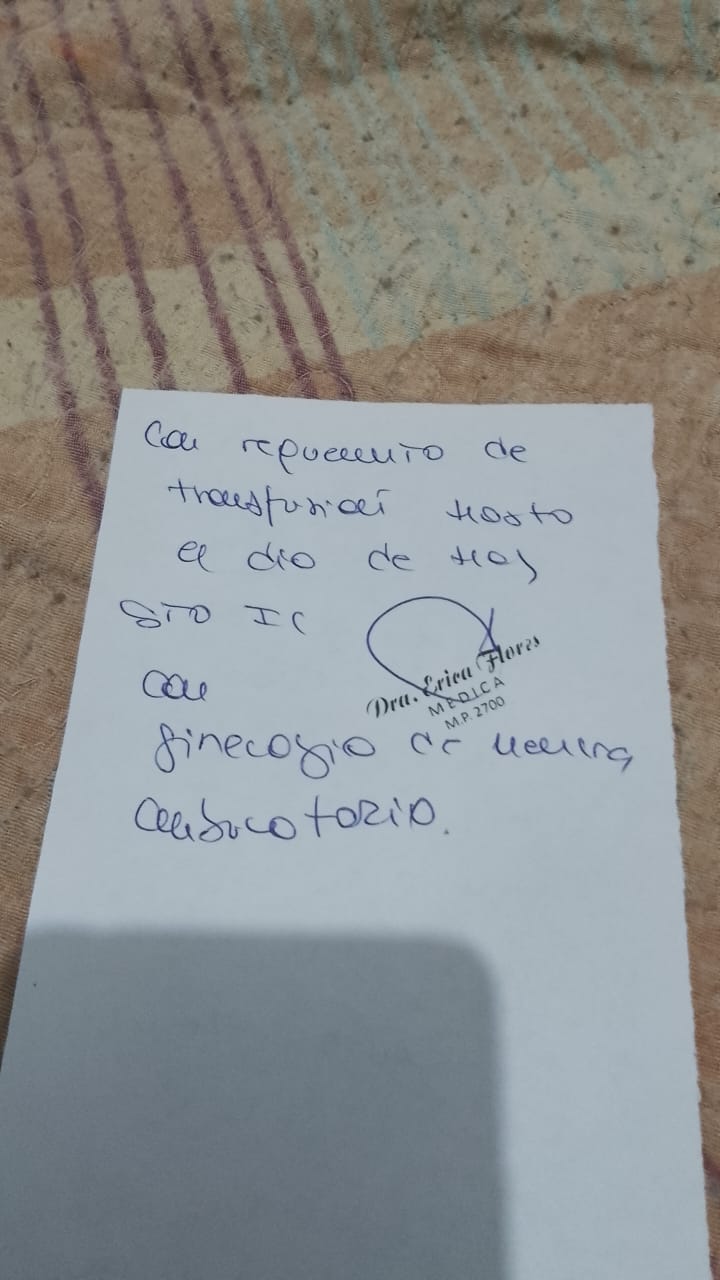 Con requerimiento de
transfusión Hasta
el dia de Hoy
STO IC
Dra. Erica Flores
MEDICA
M.P. 2700
con
ginecologia de manera
ambulatoria.